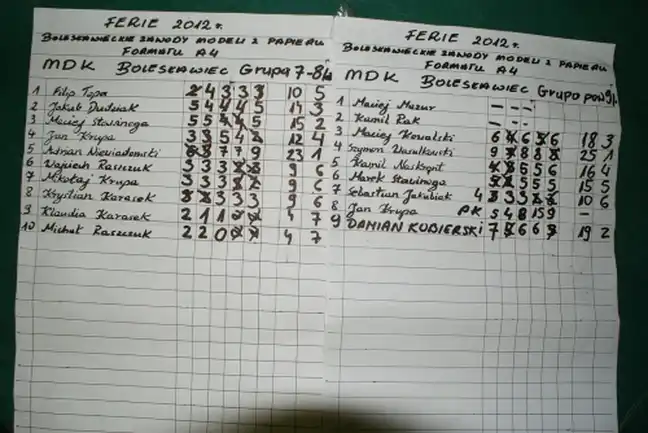 FERIE 2012 r.
BOLESŁAWIECKIE ZAWODY MODELI Z PAPIERU
FORMATU A4
MDK BOLESŁAWIEC Grupa 7-8
1 Filip Topa 2 4 3 3 3 10 5
2 Jakub Dudziak 5 4 4 4 5 14 3
3 Maciej Stawinoga 5 5 4 4 5 15 2
4 Jan Krupa 3 3 5 4 12 4
5 Adrian Niewiadomski 7 7 9 23 1
6 Wojciech Raszczuk 3 3 3 9 6
7 Mikołaj Krupa 3 3 3 9 6
8 Krystian Karasek 3 3 3 9 6
9 Klaudia Karasek 2 1 1 4 7
10 Michał Raszczuk 2 2 0 4 7
FERIE 2012 r.
BOLESŁAWIECKIE ZAWODY MODELI Z PAPIERU
FORMATU A4
MDK BOLESŁAWIEC Grupa pow 9
1 Maciej Mazur - - -
2 Kamil Rak - -
3 Maciej Kowalski 6 6 6 18 3
4 Szymon 9 8 8 25 1
5 Kamil 5 5 6 16 4
6 Marek Stawinoga 5 5 5 15 5
7 Sebastian Jakubiak 4 3 3 10 6
8 Jan Krupa PK 5 4 8 15 9 -
9 DAMIAN KOBIERSKI 7 6 6 19 2